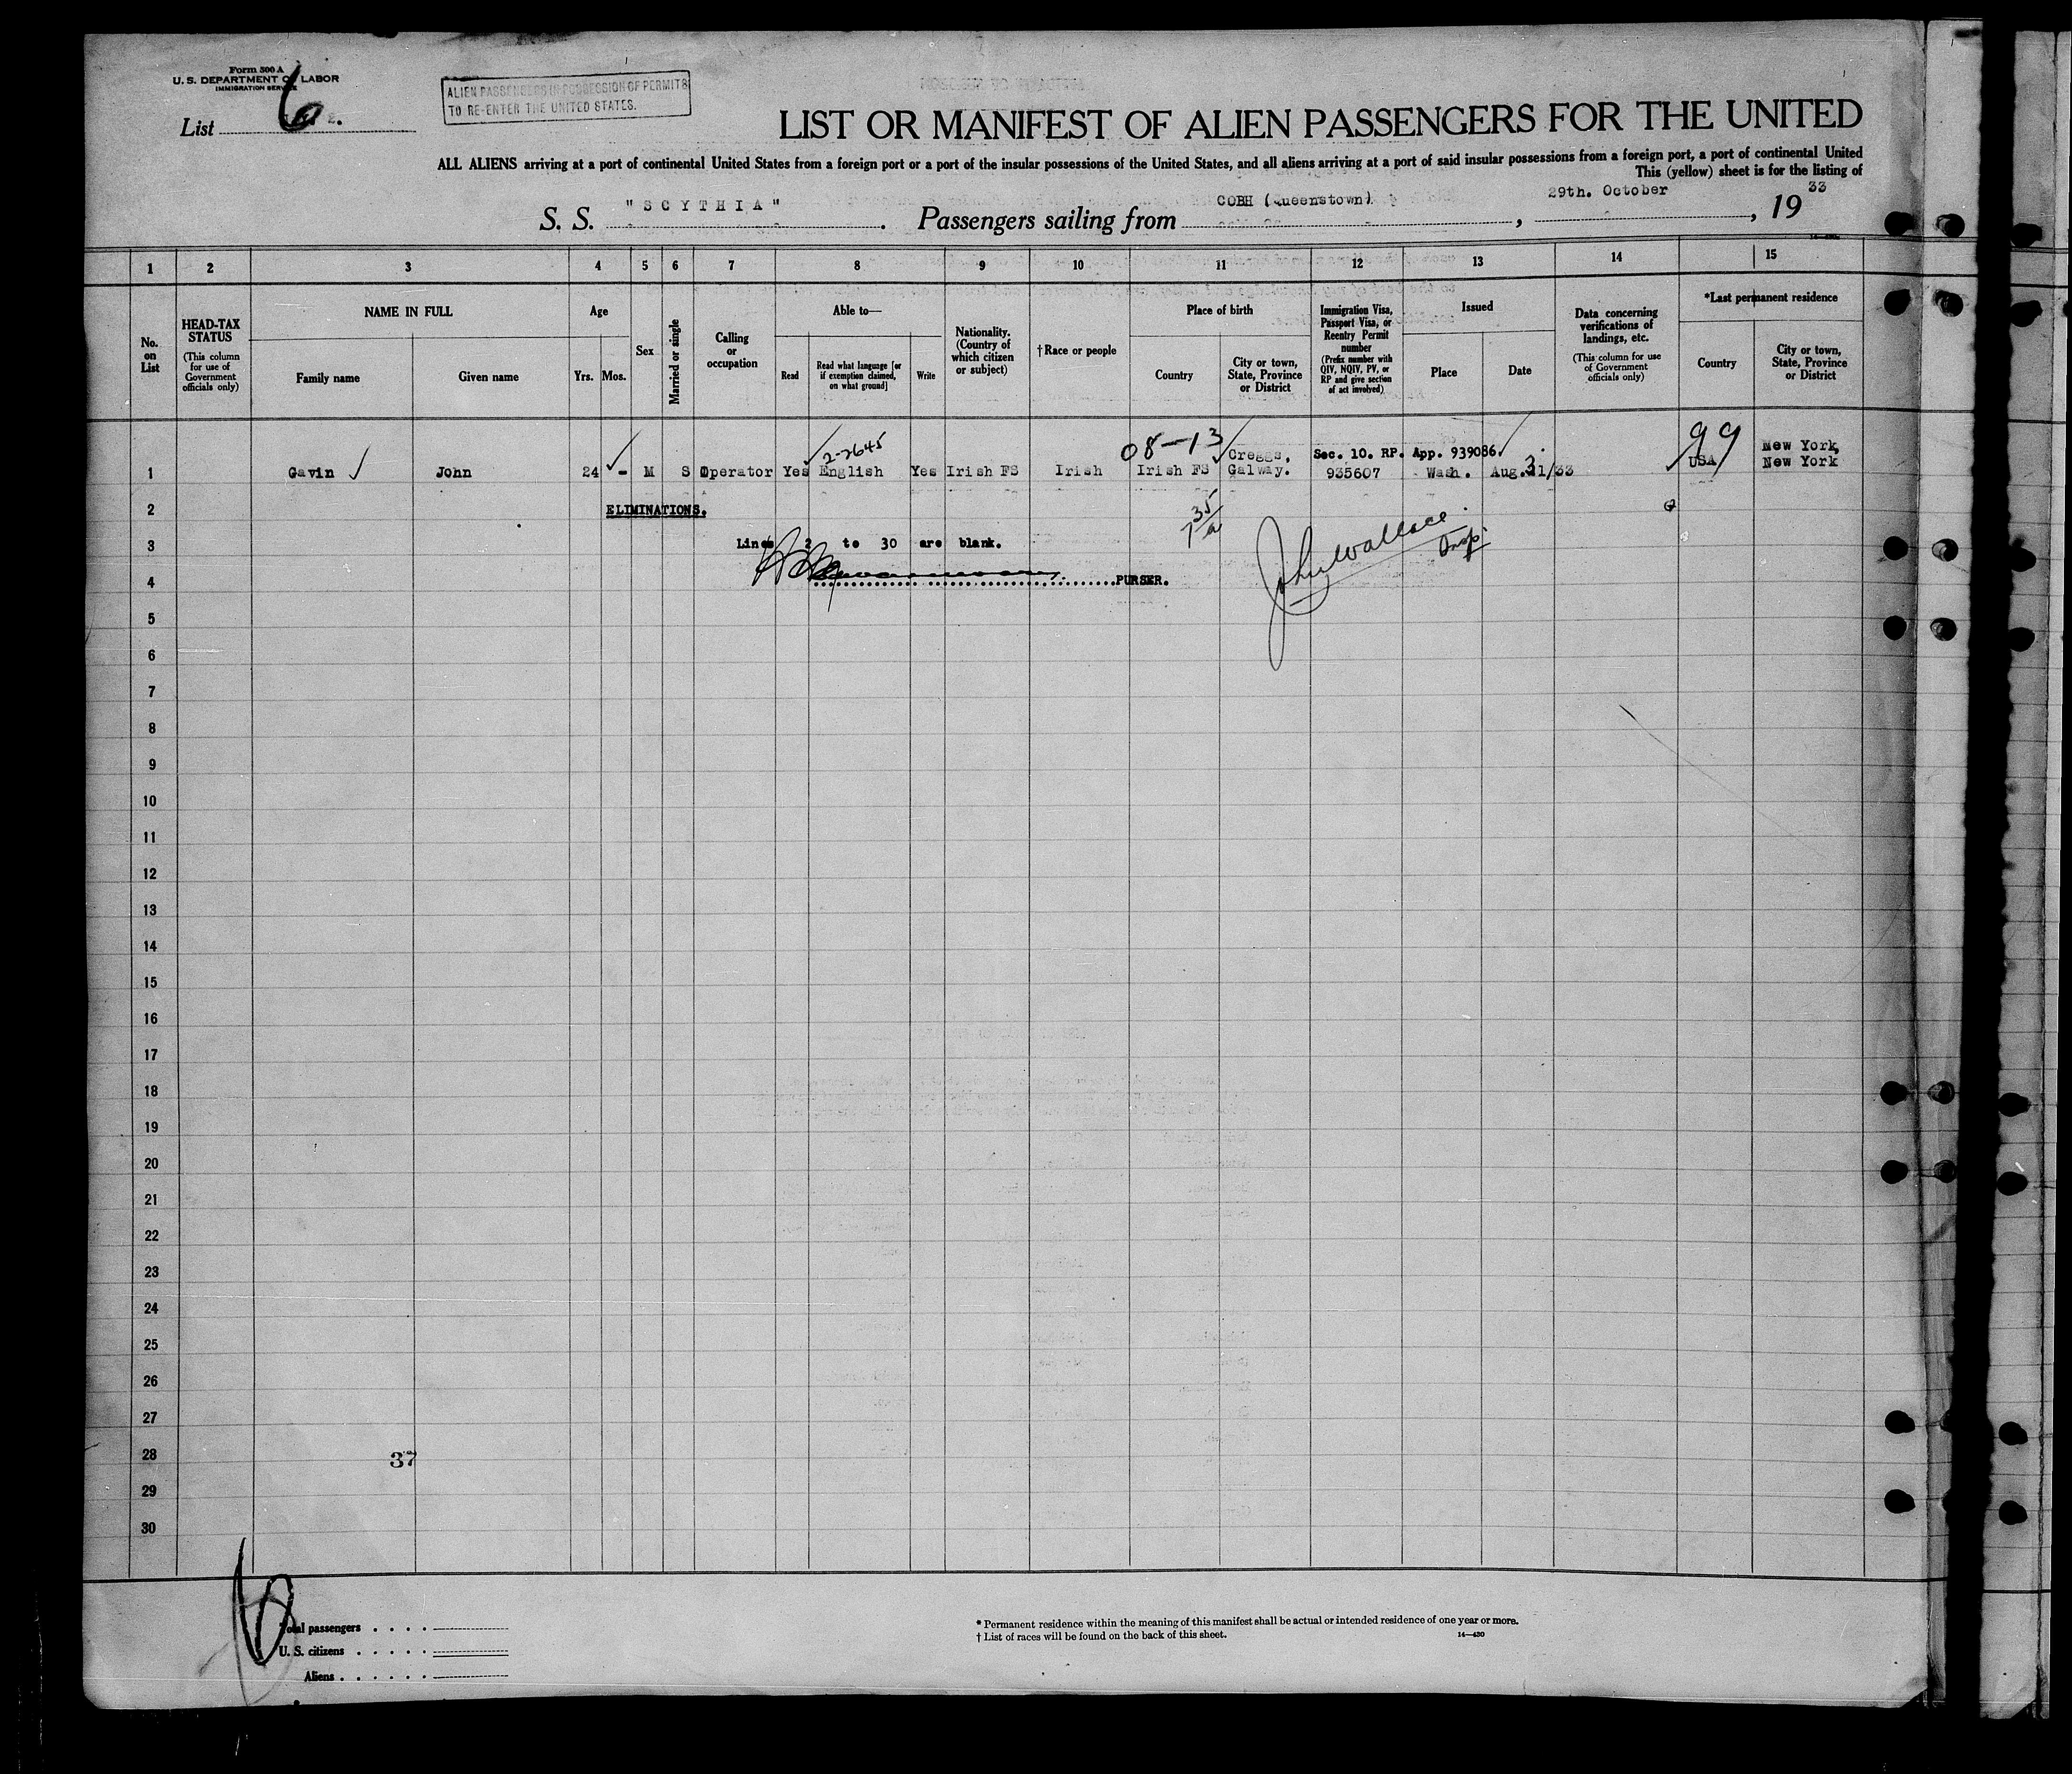 Form 500 A
U. S. DEPARTMENT OF LABOR
IMMIGRATION SERVICE
List 6
ALIEN PASSENGERS IN POSSESSION OF PERMITS
TO RE-ENTER THE UNITED STATES.
LIST OR MANIFEST OF ALIEN PASSENGERS FOR THE UNITED
ALL ALIENS arriving at a port of continental United States from a foreign port or a port of the insular possessions of the United States, and all aliens arriving at a port of said insular possessions from a foreign port, a port of continental United
This (yellow) sheet is for the listing of
S. S. "SCYTHIA". Passengers sailing from COBH (Queenstown), 29th. October, 19 33
1 2 3 4 5 6 7 8 9 10 11 12 13 14 15
No. on List
HEAD-TAX STATUS
(This column for use of Government officials only)
NAME IN FULL
Family name
Given name
Age
Yrs. Mos.
Sex
Married or single
Calling or occupation
Able to—
Read
Read what language [or if exemption claimed, on what ground]
Write
Nationality. (Country of which citizen or subject)
† Race or people
Place of birth
Country
City or town, State, Province or District
Immigration Visa, Passport Visa, or Reentry Permit number
(Prefix number with QIV, NQIV, PV, or RP and give section of act involved)
Issued
Place
Date
Data concerning verifications of landings, etc.
(This column for use of Government officials only)
*Last permanent residence
Country
City or town, State, Province or District
08-13 99
2-2645 Creggs, Sec. 10. RP. App. 939086 New York,
1 Gavin John 24 - M S Operator Yes English Yes Irish FS Irish Irish FS Galway. 935607 Wash. Aug.31/33 USA New York
2 ELIMINATIONS.
3 Lines 2 to 30 are blank.
John Wallace
Insp.
4 PURSER.
5
6
7
8
9
10
11
12
13
14
15
16
17
18
19
20
21
22
23
24
25
26
27
28 37
29
30
6
Total passengers
U. S. citizens
Aliens
* Permanent residence within the meaning of this manifest shall be actual or intended residence of one year or more.
† List of races will be found on the back of this sheet.
14—430